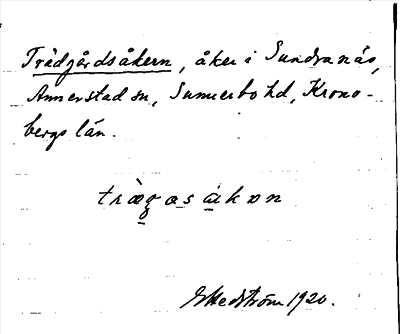 Trädgårdsåkern, åker i Sundranäs,
Annerstad sn, Sunnerbo hd, Krono-
bergs län.
trægasåkɒn
G Hedström 1920.